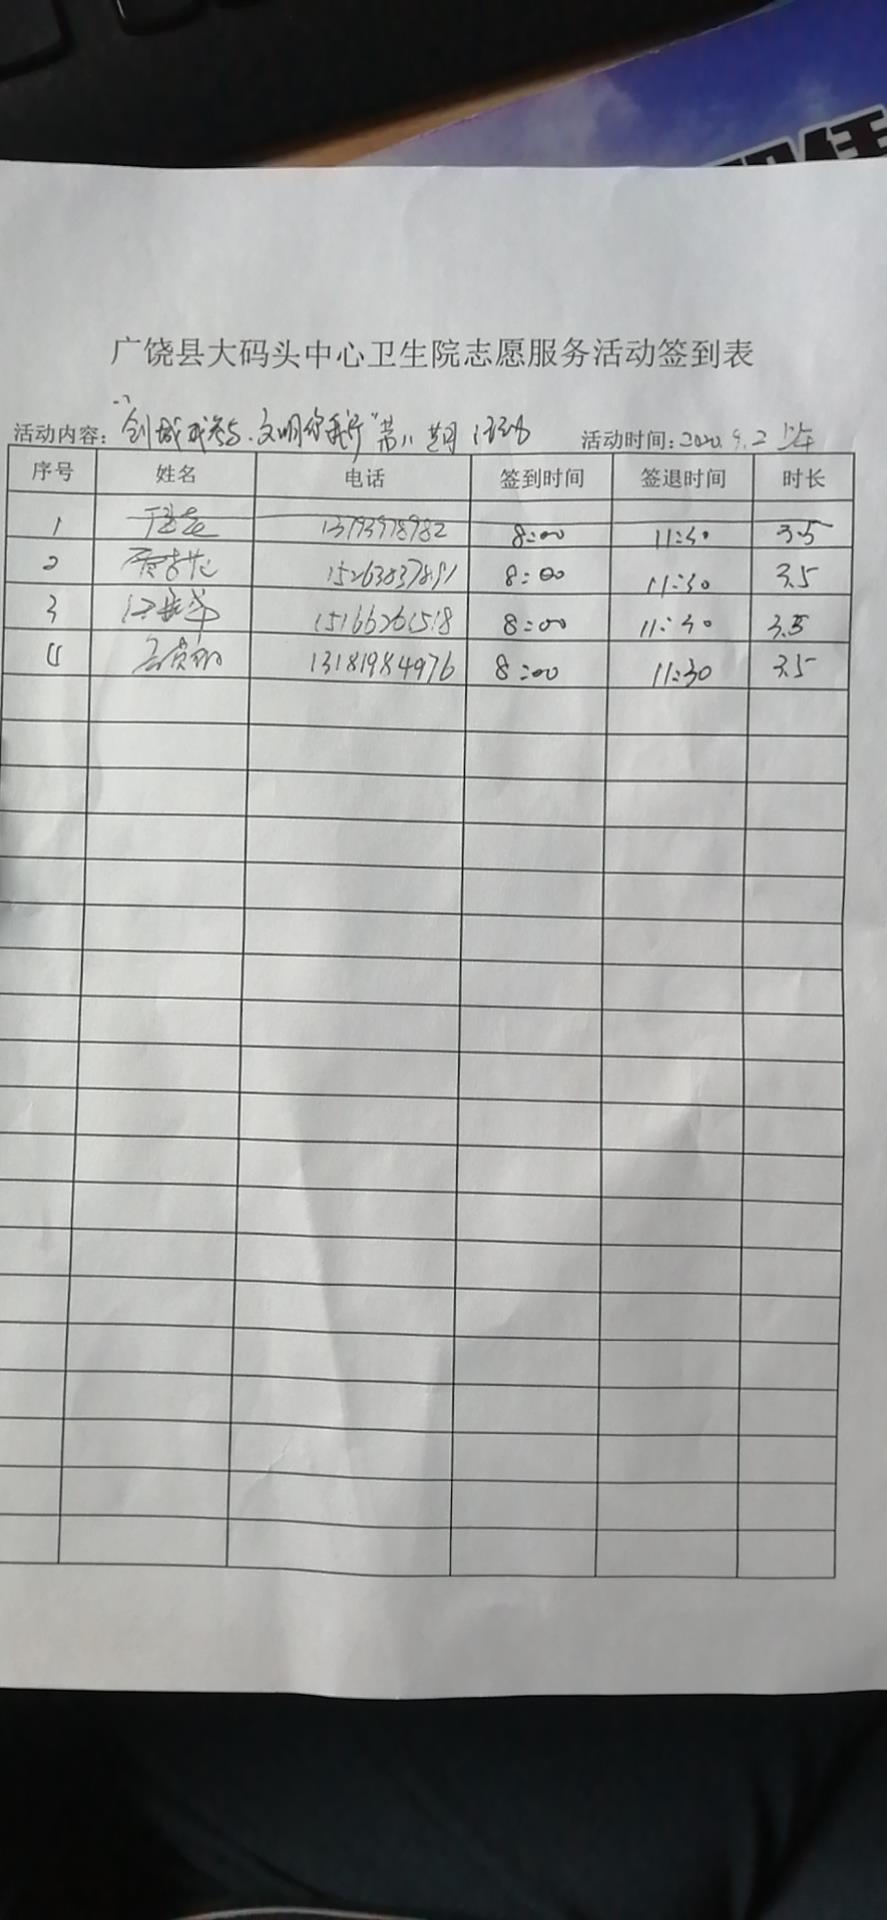 广饶县大码头中心卫生院志愿服务活动签到表
活动内容：“创城我参与、文明你我行”第八期活动 活动时间：2020.9.2 上午
序号 姓名 电话 签到时间 签退时间 时长
1 13793978982 8:00 11:30 3.5
2 15263837891 8:00 11:30 3.5
3 15166261518 8:00 11:30 3.5
4 13181984976 8:00 11:30 3.5